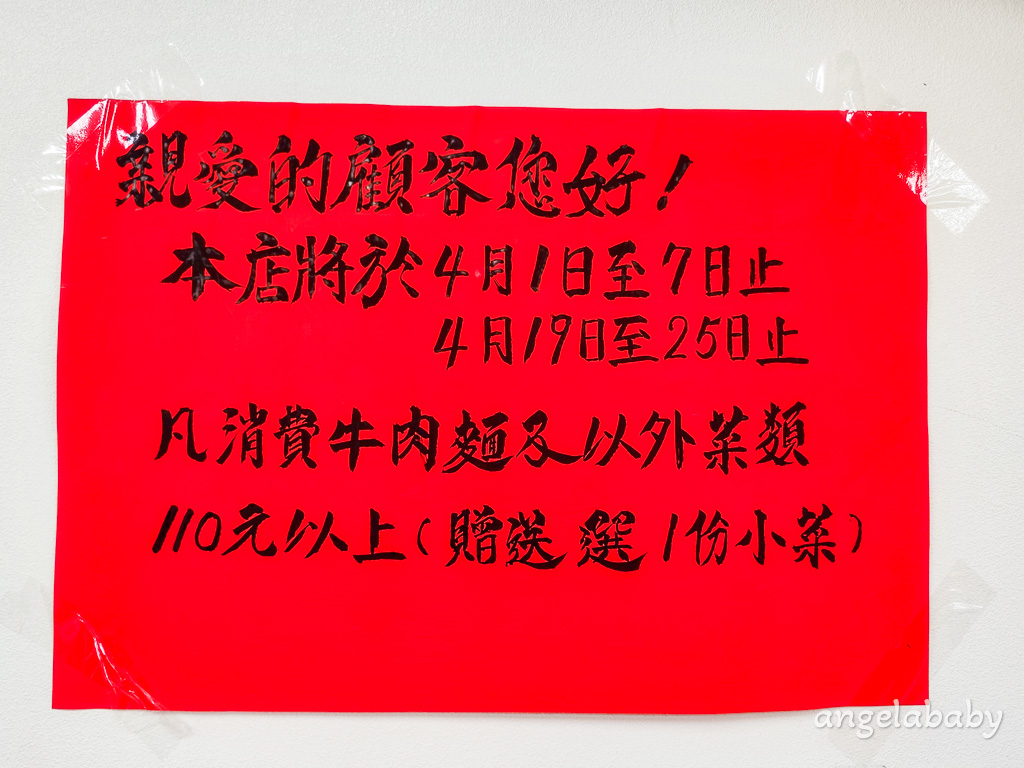 親愛的顧客您好!
本店將於4月1日至7日止
4月19日至25日止
凡消費牛肉麵及以外菜類
110元以上(贈送選1份小菜)
angelababy